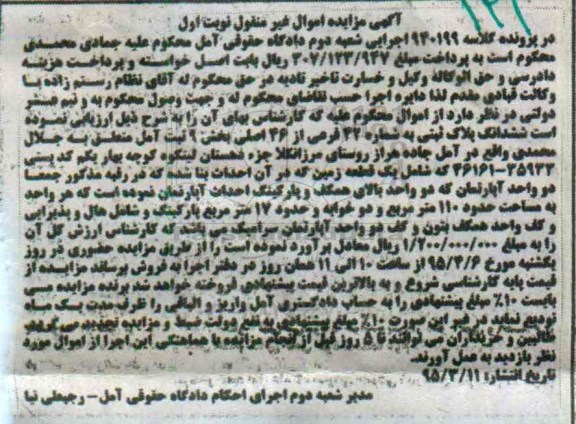 ۱۲۲
آگهی مزایده اموال غیر منقول نوبت اول
در پرونده کلاسه ۹۴۰۱۹۹ اجرایی شعبه دوم دادگاه حقوقی آمل محکوم علیه جمادی محمدی
محکوم است به پرداخت مبلغ ۳۰۷/۱۲۳/۹۴۷ ریال بابت اصل خواسته و پرداخت هزینه
دادرسی و حق الوکاله وکیل و خسارت تاخیر تادیه در حق محکوم له آقای نظام رستم زاده با
وکالت قبادی مقدم لذا دایره اجرا حسب تقاضای محکوم له و جهت وصول محکوم به و نیم عشر
دولتی در نظر دارد از اموال محکوم علیه که کارشناس بهای آن را به شرح ذیل ارزیابی نموده
است ششدانگ پلاک ثبتی به شماره ۴۲ فرعی از ۳۶ اصلی بخش ۹ ثبت آمل متعلق به جلال
محمدی واقع در آمل جاده هراز روستای مرزانکلا جزء دهستان لیتکوه کوچه بهار یکم کد پستی
۳۶۱۶۱-۳۵۹۳۳ که شامل یک قطعه زمین که در آن احداث بنا شده که در رقبه مذکور جمعا
دو واحد آپارتمان که دو واحد بالای همکف و پارکینگ احداث آپارتمان نموده است که هر واحد
به مساحت حدود ۱۱۰ متر مربع و دو خوابه و حدود ۱۷ متر مربع پارکینگ و شامل هال و پذیرایی
و کف واحد همکف بتون و کف دو واحد آپارتمان سرامیک می باشد که کارشناس ارزش کل آن
را به مبلغ ۱/۲۰۰/۰۰۰/۰۰۰ ریال معادل برآورد نموده است را از طریق مزایده حضوری در روز
یکشنبه مورخ ۹۵/۴/۶ از ساعت ۱۰ الی ۱۱ همان روز در دفتر اجرا به فروش برساند مزایده از
قیمت پایه کارشناسی شروع و به بالاترین قیمت پیشنهادی فروخته خواهد شد برنده مزایده می
بایست ۱۰٪ مبلغ پیشنهادی را به حساب دادگستری آمل واریز و الباقی را ظرف مدت یک ماه
تودیع نماید در غیر این صورت ۱۰٪ مبلغ پیشنهادی به نفع دولت ضبط و مزایده تجدید می گردد
طالبین و خریداران می توانند تا ۵ روز قبل از انجام مزایده با هماهنگی این اجرا از اموال مورد
نظر بازدید به عمل آورند.
تاریخ انتشار: ۹۵/۳/۱۱
مدیر شعبه دوم اجرای احکام دادگاه حقوقی آمل - رجبعلی نیا